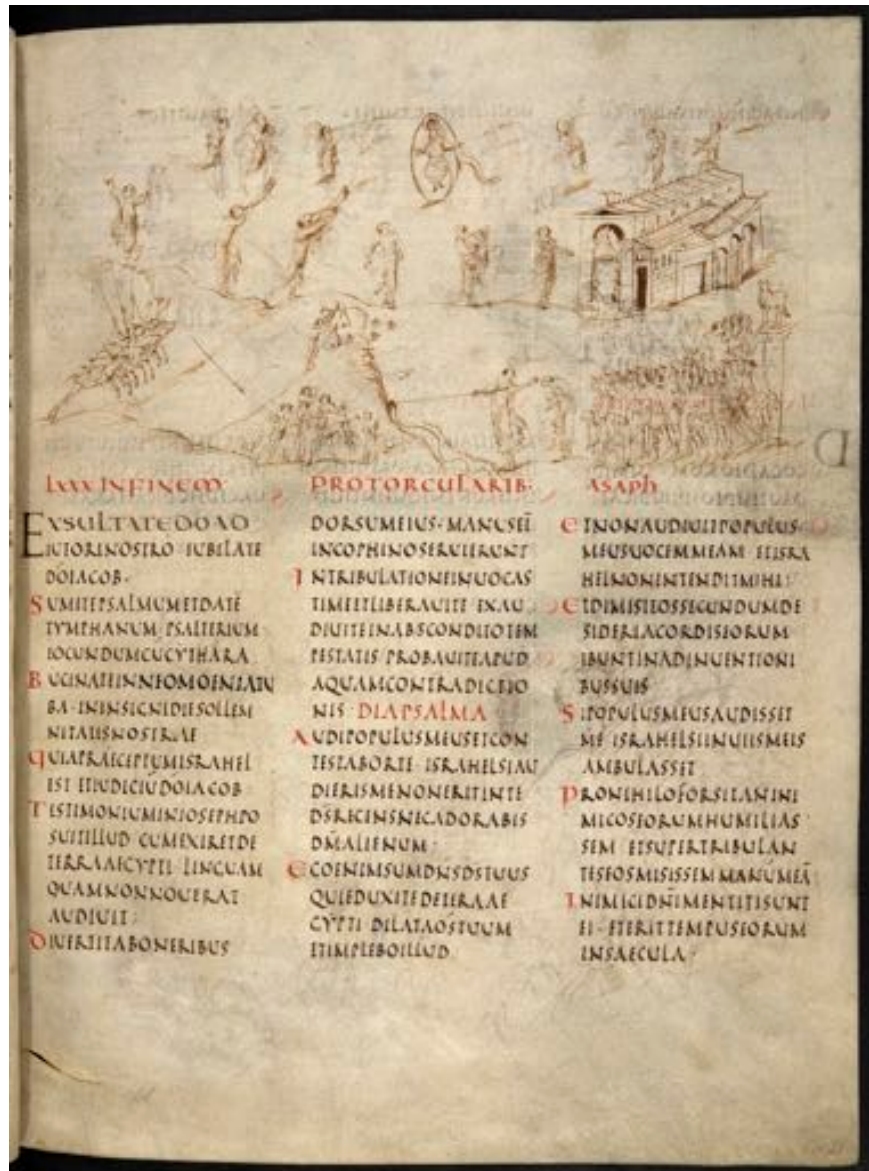 LXXX INFINEM PROTORCULARIB· ASAPH
EXSULTATEDO AD
IUTORINOSTRO IUBILATE
DOIACOB·
SUMITEPSALMUMETDATE
TYMPHANUM PSALTERIUM
IOCUNDUMCUCYTHARA
BUCINATEINNEOMOENIATU
BA· ININSIGNIDIESOLLEM
NITATISNOSTRAE
QUIAPRAECEPTUMISRAHEL
EST ETIUDICIŪDOIACOB
TESTIMONIUMINIOSEPHPO
SUITILLUD CUMEXIRETDE
TERRAAEGYPTI LINGUAM
QUAMNONNOUERAT
AUDIUIT·
DIUERTITABONERIBUS
DORSUMEIUS· MANUSEI
INCOPHINOSERUIERUNT
INTRIBULATIONEINUOCAS
TIMEETLIBERAUITE EXAU
DIUITEINABSCONDITOTEM
PESTATIS PROBAUITEAPUD
AQUAMCONTRADICTIO
NIS DIAPSALMA
AUDIPOPULUSMEUSETCON
TESTABORTE ISRAHELSIAU
DIERISMENONERITINTE
DSRECENSNECADORABIS
DMALIENUM·
EGOENIMSUMDNSDSTUUS
QUIEDUXITEDETERRAAE
GYPTI DILATAOSTUUM
ETIMPLEBOILLUD
ETNONAUDIUITPOPULUS
MEUSUOCEMMEAM ETISRA
HELNONINTENDITMIHI·
ETDIMISIEOSSECUNDUMDE
SIDERIACORDISEORUM
IBUNTINADINUENTIONI
BUSSUIS
SIPOPULUSMEUSAUDISSET
ME ISRAHELSIINUIISMEIS
AMBULASSET
PRONIHILOFORSITANINI
MICOSEORUMHUMILIAS
SEM ETSUPERTRIBULAN
TESEOSMISISSEMMANŪMEĀ
INIMICIDNIMENTITISUNT
EI· ETERITTEMPUSEORUM
INSAECULA·